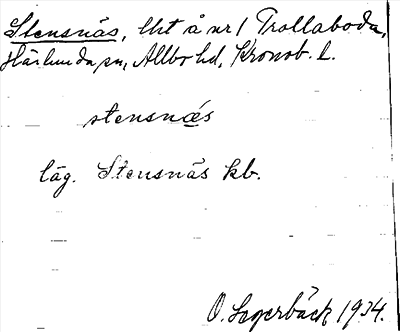 Stensnäs, lht å nr 1 Trollaboda,
Härlunda sn, Allbo hd, Kronob. l.
stensnäs
läg. Stensnäs kb.
O. Lagerbäck 1934.